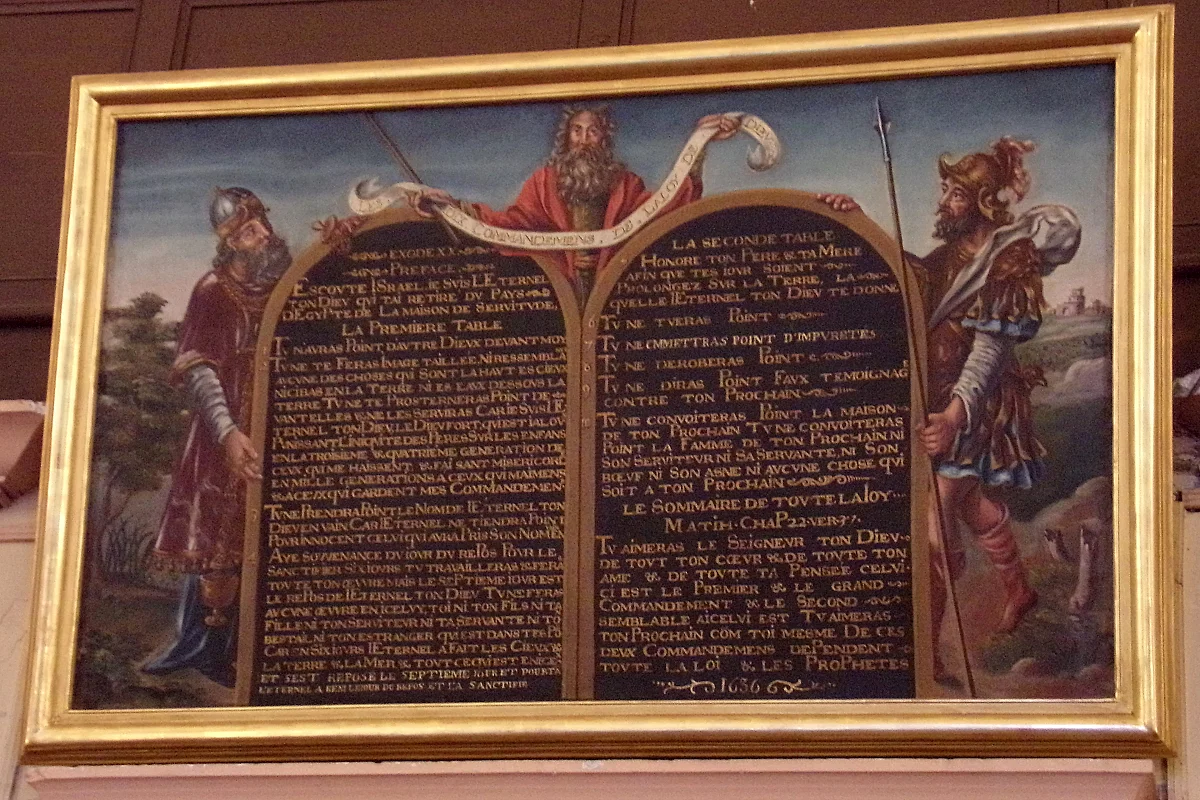 LES DIX COMMANDEMENS DE LALOY DE DIEV
EXODE XX
PREFACE
ESCOVTE ISRAEL IE SVIS LETERNEL
TON DIEV QVI TAI RETIRE DV PAYS
DEGYPTE DE LA MAISON DE SERVITVDE
LA PREMIERE TABLE
TV NAVRAS POINT DAVTRE DIEVX DEVANT MOY
TV NE TE FERAS IMAGE TAILLEE NI RESSEMBLĀ
AVCVNE DES CHOSES QVI SONT LA HAVT ES CIEVX
NI CIBAS EN LA TERRE NI ES EAVX DESSOVS LA
TERRE TV NE TE PROSTERNERAS POINT DE
VANT ELLES & NE LES SERVIRAS CAR IE SVIS LE
TERNEL TON DIEV LE DIEV FORT QVI EST IALOV
PVNISSANT LINIQVITE DES PERES SVR LES ENFANS
EN LA TROISIEME & QVATRIEME GENERATION DE
CEVX QVI ME HAISSENT & FAISANT MISERICORE
EN MILLE GENERATIONS A CEVX QVI MAIMENS
& A CEVX QVI GARDENT MES COMMANDEMEN
TV NE PRENDRA POINT LE NOM DE LETERNEL TON
DIEV EN VAIN CAR LETERNEL NE TIENDRA POINT
POVR INNOCENT CELVI QVI AVRA PRIS SON NOM EN
AYE SOVVENANCE DV IOVR DV REPOS POVR LE
SANCTIFIER SIX IOVRS TV TRAVAILLERAS & FERA
TOVTE TON ŒVVRE MAIS LE SEPTIEME IOVR EST
LE REPOS DE LETERNEL TON DIEV TV NE FERAS
AVCVNE ŒVVRE EN ICELVY, TOI NI TON FILS NI TA
FILLE NI TON SERVITEVR NI TA SERVANTE NI TO
BESTAIL NI TON ESTRANGER QVI EST DANS TES PO
CAR EN SIX IOVRS LETERNEL A FAIT LES CIEVX &
LA TERRE & LA MER & TOVT CE QVI EST EN ICE
ET SEST REPOSE LE SEPTIEME IOVR ET POVRTA
LETERNEL A BENI LE IOVR DE REPOS ET LA SANCTIFIE
LA SECONDE TABLE
HONORE TON PERE & TA MERE
AFIN QVE TES IOVR SOIENT
PROLONGEZ SVR LA TERRE, LA
QVELLE LETERNEL TON DIEV TE DONNE
TV NE TVERAS POINT
TV NE CMMETTRAS POINT D'IMPVRETES
TV NE DEROBERAS POINT
TV NE DIRAS POINT FAVX TEMOIGNAG
CONTRE TON PROCHAIN
TV NE CONVOITERAS POINT LA MAISON
DE TON PROCHAIN TV NE CONVOITERAS
POINT LA FAMME DE TON PROCHAIN NI
SON SERVITEVR NI SA SERVANTE, NI SON
BŒVF NI SON ASNE NI AVCVNE CHOSE QVI
SOIT A TON PROCHAIN
LE SOMMAIRE DE TOVTE LA LOY
MATTH·CHAP 22·VER·37·
TV AIMERAS LE SEIGNEVR TON DIEV
DE TOVT TON CŒVR & DE TOVTE TON
AME & DE TOVTE TA PENSEE CELVI·
CI EST LE PREMIER & LE GRAND
COMMANDEMENT & LE SECOND
SEMBLABLE A ICELVI EST TV AIMERAS
TON PROCHAIN COM TOI MESME DE CES
DEVX COMMANDEMENS DEPENDENT
TOVTE LA LOI & LES PROPHETES
1656